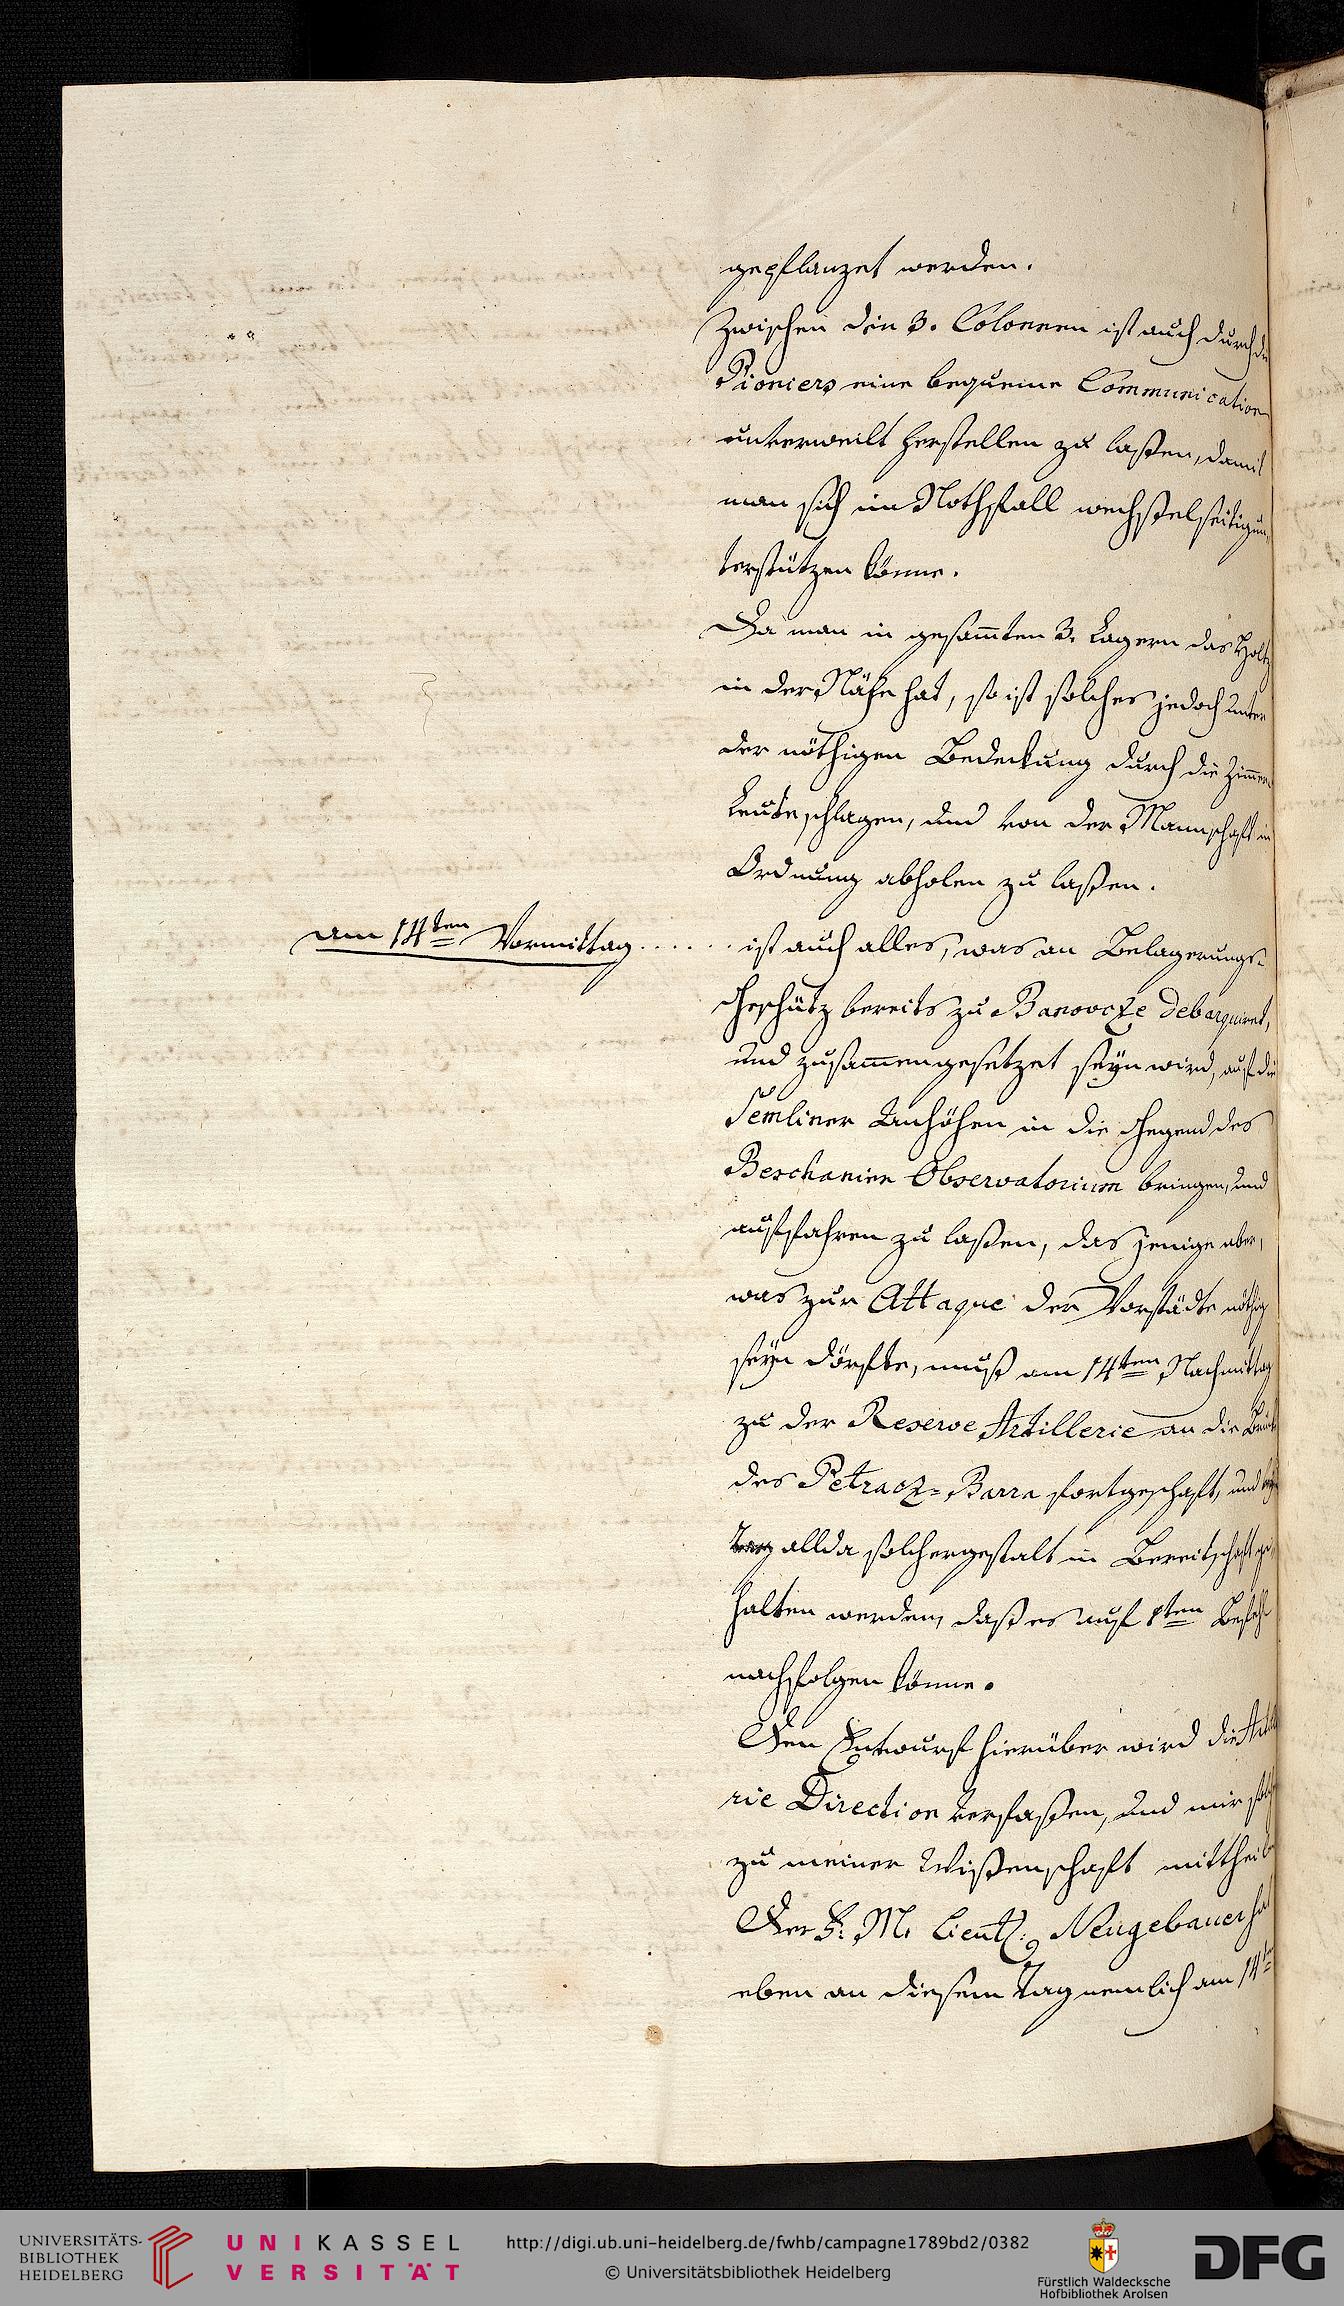 gepflanzet werden.
Zwischen den 3. Colonnen ist auch durch die
Pioniers eine bequeme Communication
unverweilt herstellen zu laßen, damit
man sich im Nothfall wechßelseitig un-
terstützen könne.
Da man in gesam̅ten 3. Lagern das Holtz
in der Nähe hat, so ist solches jedoch unter
der nöthigen Bedeckung durch die Zim̅er-
Leute schlagen, und von der Mannschaft in
Ordnung abholen zu laßen.
am 14ten Vormittag . . . . . . ist auch alles, was an Belagerungs-
Geschütz bereits zu Banovcze debarquiret,
und zusam̅engesetzet seyn wird, auf die
Semliner Anhöhen in die Gegend des
Beschanier Observatorium bringen, und
auffahren zu laßen, das jenige aber,
was zur Attaque der Vorstädte nöthig
seyn dörfte, muß am 14ten Nachmittag
zu der Reserve Artillerie an die Brücke
des Petracz-Barra fortgeschaft, und
allda solchergestalt in Bereitschaft ge-
halten werden, daß es auf 1ten Befehl
nachfolgen könne.
Den Entwurf hierüber wird die Artille-
rie Direction verfaßen, und mir solchen
zu meiner Wißenschaft mittheilen
Der F: M. Lieut: Neugebauer hat
eben an diesem Tag nemlich am 14ten
UNIVERSITÄTS-
BIBLIOTHEK
HEIDELBERG
UNIKASSEL
VERSITÄT
http://digi.ub.uni-heidelberg.de/fwhb/campagne1789bd2/0382
© Universitätsbibliothek Heidelberg
Fürstlich Waldecksche
Hofbibliothek Arolsen
DFG